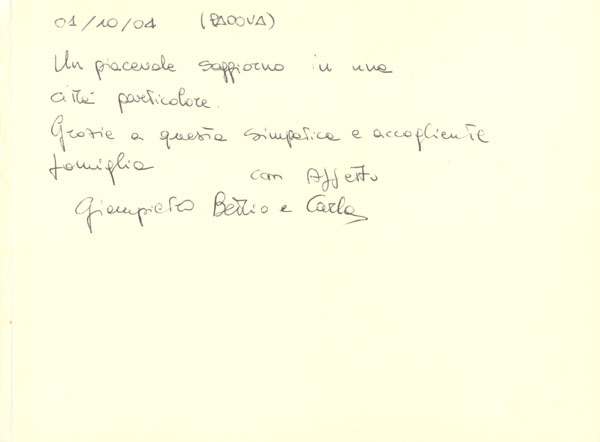 01/10/04 (PADOVA)
Un piacevole soggiorno in una
città particolare.
Grazie a questa simpatica e accogliente
famiglia con Affetto
Giampietro Bettio e Carla